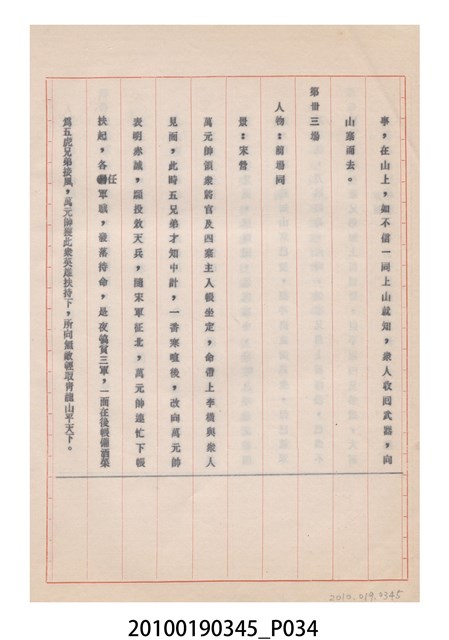 事，在山上，如不信一同上山就知，衆人收囘武器，向
山寨而去。
第卅三場
人物：前場同
景：宋營
萬元帥領衆將官及四寨主入帳坐定，命帶上李機與衆人
見面，此時五兄弟才知中計，一番寒喧後，改向萬元帥
表明赤誠，願投效天兵，隨宋軍征北，萬元帥連忙下帳
扶起，各任軍職，發落待命，是夜犒賞三軍，一面在後帳備酒菜
爲五虎兄弟接風，萬元帥獲此衆英雄扶持下，所向無敵輕取青龍山平天下。
2010.019.0345
20100190345_P034